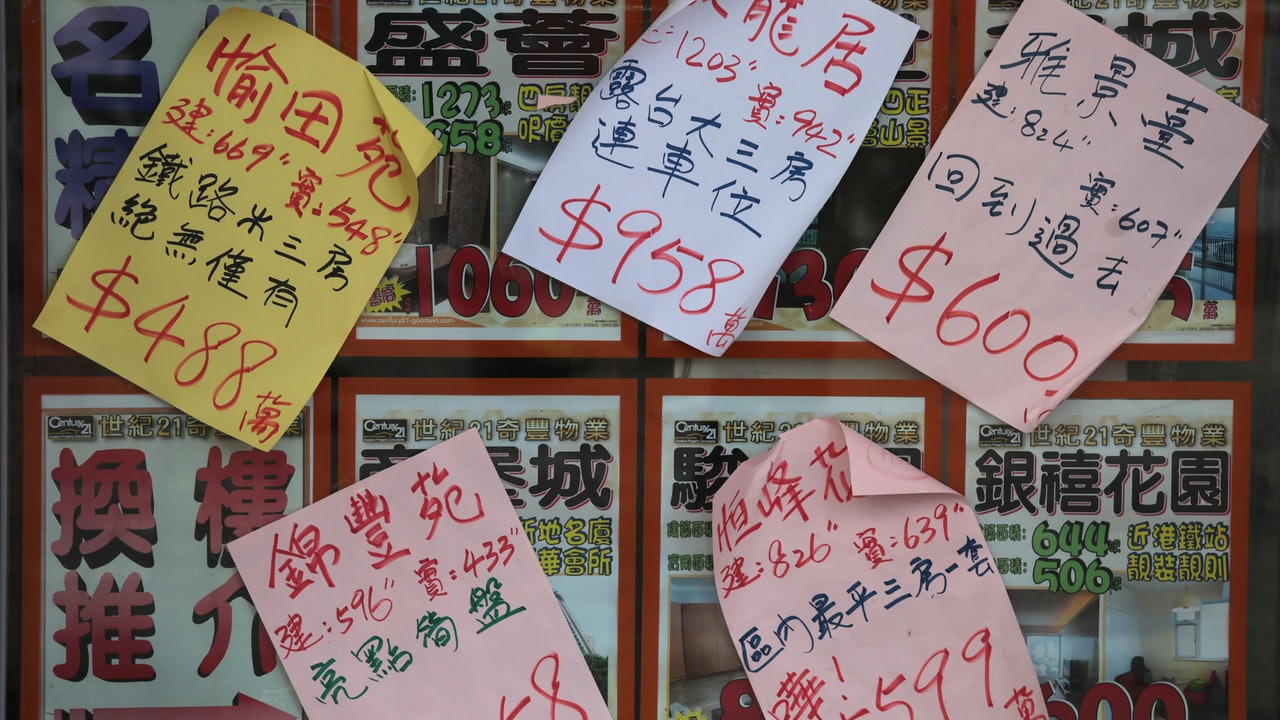 名
精
愉田苑
建:669" 實:548"
鐵路米三房
絶無僅有
$488
萬
世紀21奇豐物業
盛薈
1273
958
四房靚
呎價
1060萬
www.century21-goodwin.com
龍居
1203" 實:942"
露台大三房
連車位
$958
萬
四正
山景
城
萬
雅景臺
建:824" 實:607"
回到過去
$600
Century 21 世紀21奇豐物業
換樓
推介
Century 21 世紀21奇豐物業
堡城
地名廈
華會所
錦豐苑
建:596" 實:433"
亮點筍盤
Century 21 世紀21奇豐物業
駿
建築面積:
實用面積:
恒峰花
建:826" 實:639"
區內最平三房一套
嘩! 599
萬
Century 21 世紀21奇豐物業
銀禧花園
建築面積: 644呎
實用面積: 506呎
近港鐵站
靚裝靚則